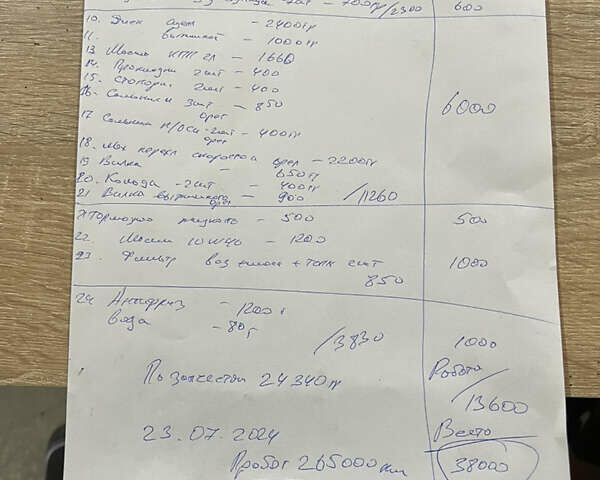 2шт - 700гр/2300 600
10. Диск сцеп - 2400гр
11. выжимной - 1000гр
13 Масло КПП 2л - 1660
14. Прокладки 2шт - 400
15. Стопора 2шт - 400
16. Сальники 3шт - 850 6000
орег
17 Сальник П/Оси - 2шт - 400гр
орег
18. Мех перекл скоростей орег - 2200гр
19 Вилка - 650гр
20. Кольца - 2шт - 400гр
21 Вилка выжимного - 900 /11260
орег
Тормозна жидкость - 500 500
22. Масло 10W40 - 1200
23. Фильтр воз +масл + топл 2шт 1000
850
24 Антифриз - 1200г
вода - 80г /3830 1000
По запчастям 24340гр Робота
/13600
23.07.2024 Всего
Пробег 265000км 38000